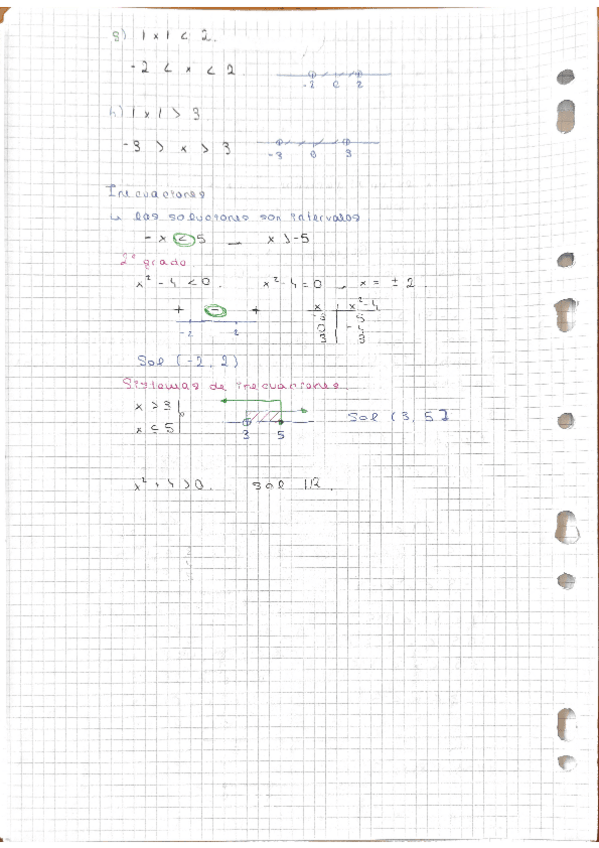 g) |x| < 2.
-2 < x < 2
-2 0 2
h) |x| > 3
-3 > x > 3
-3 0 3
Inecuaciones
↳ las soluciones son intervalos
-x < 5 _ x > -5
2º grado
x² - 4 < 0. x² - 4 = 0 , x = ± 2
+ - +
-2 2
x | x² - 4
-3 | 5
0 | -4
3 | 3
Sol (-2, 2)
Sistemas de inecuaciones
x > 3
x ≤ 5
3 5
Sol (3, 5]
x² + 4 > 0. Sol ℝ.